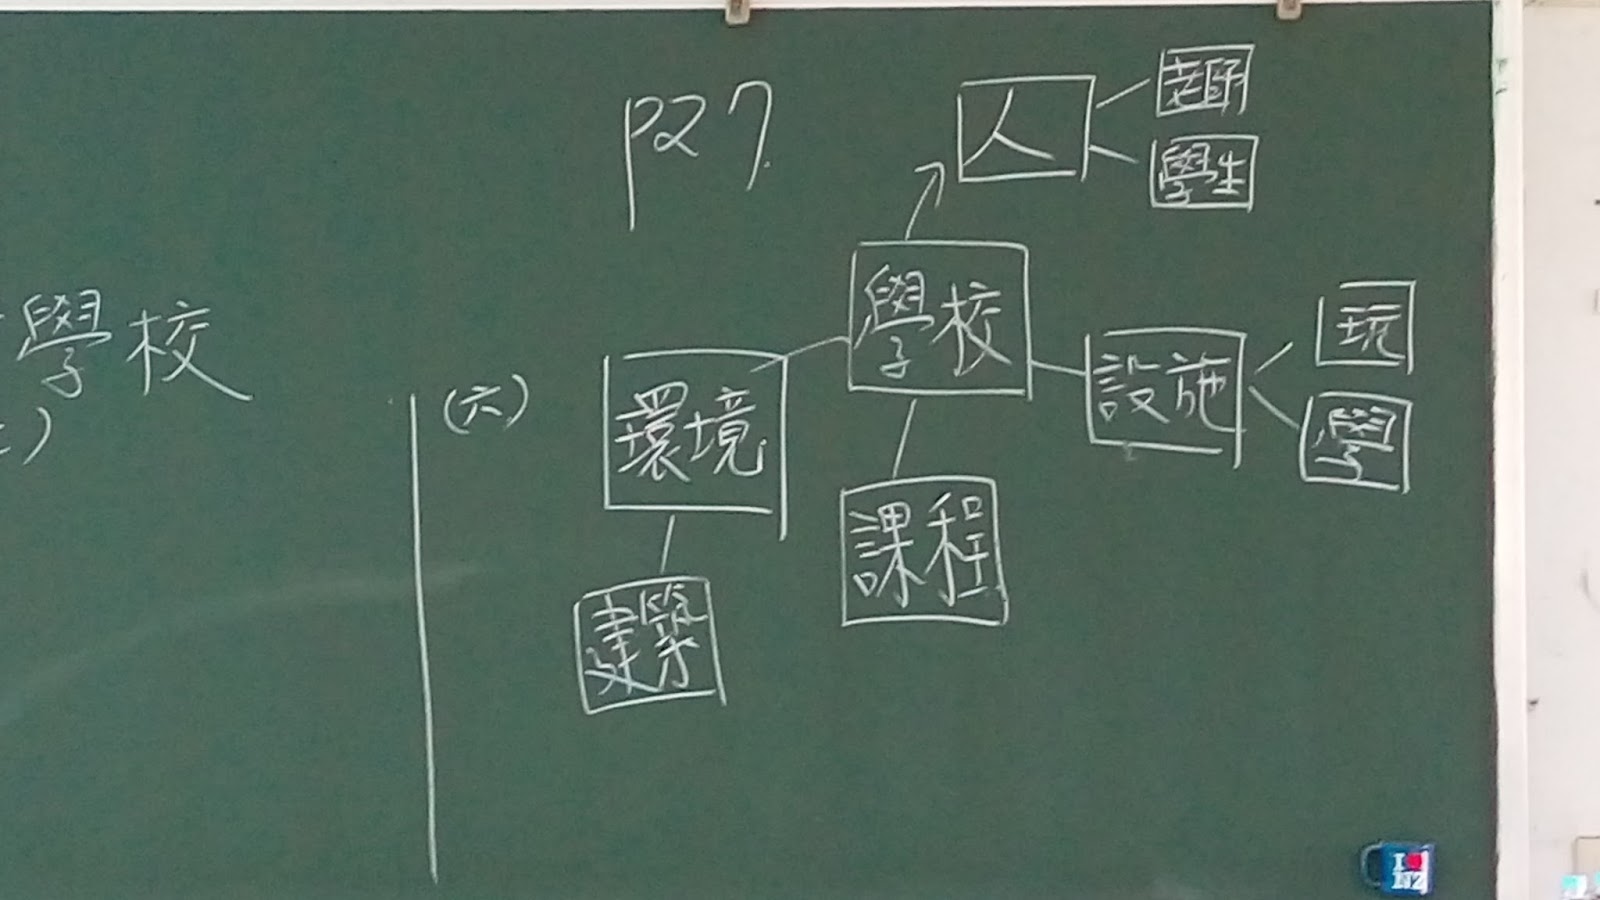 P27
人
老師
學生
學校
學校
環境
設施
玩
學
(六)
課程
建築
I
NZ